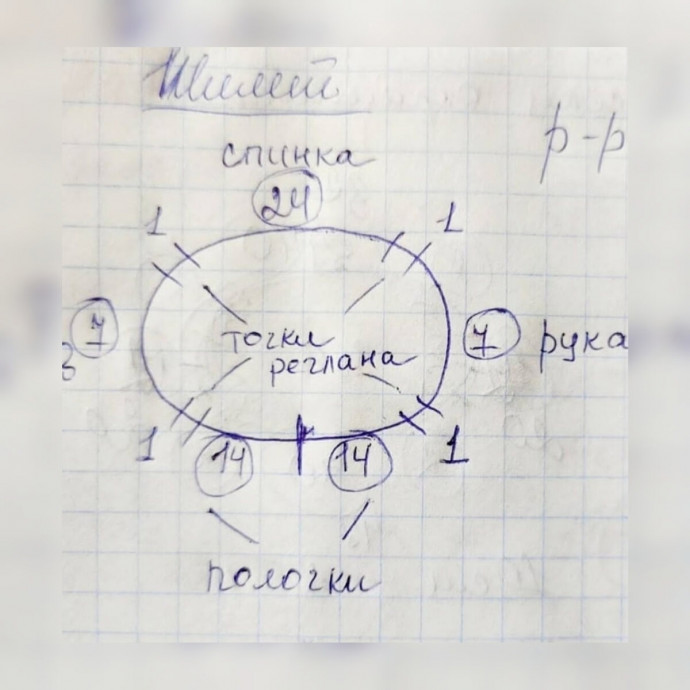 Жилет
спинка
р-р
24
1 1
7 7 рука
в
точки
реглана
1 1
14 14
полочки